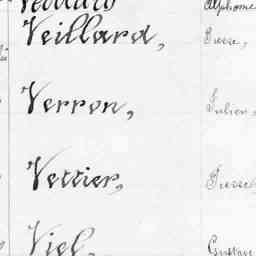 Alphonse
Veillard, Pierre,
Verron, Julien,
Vettier, Pierre
Viel, Gustave